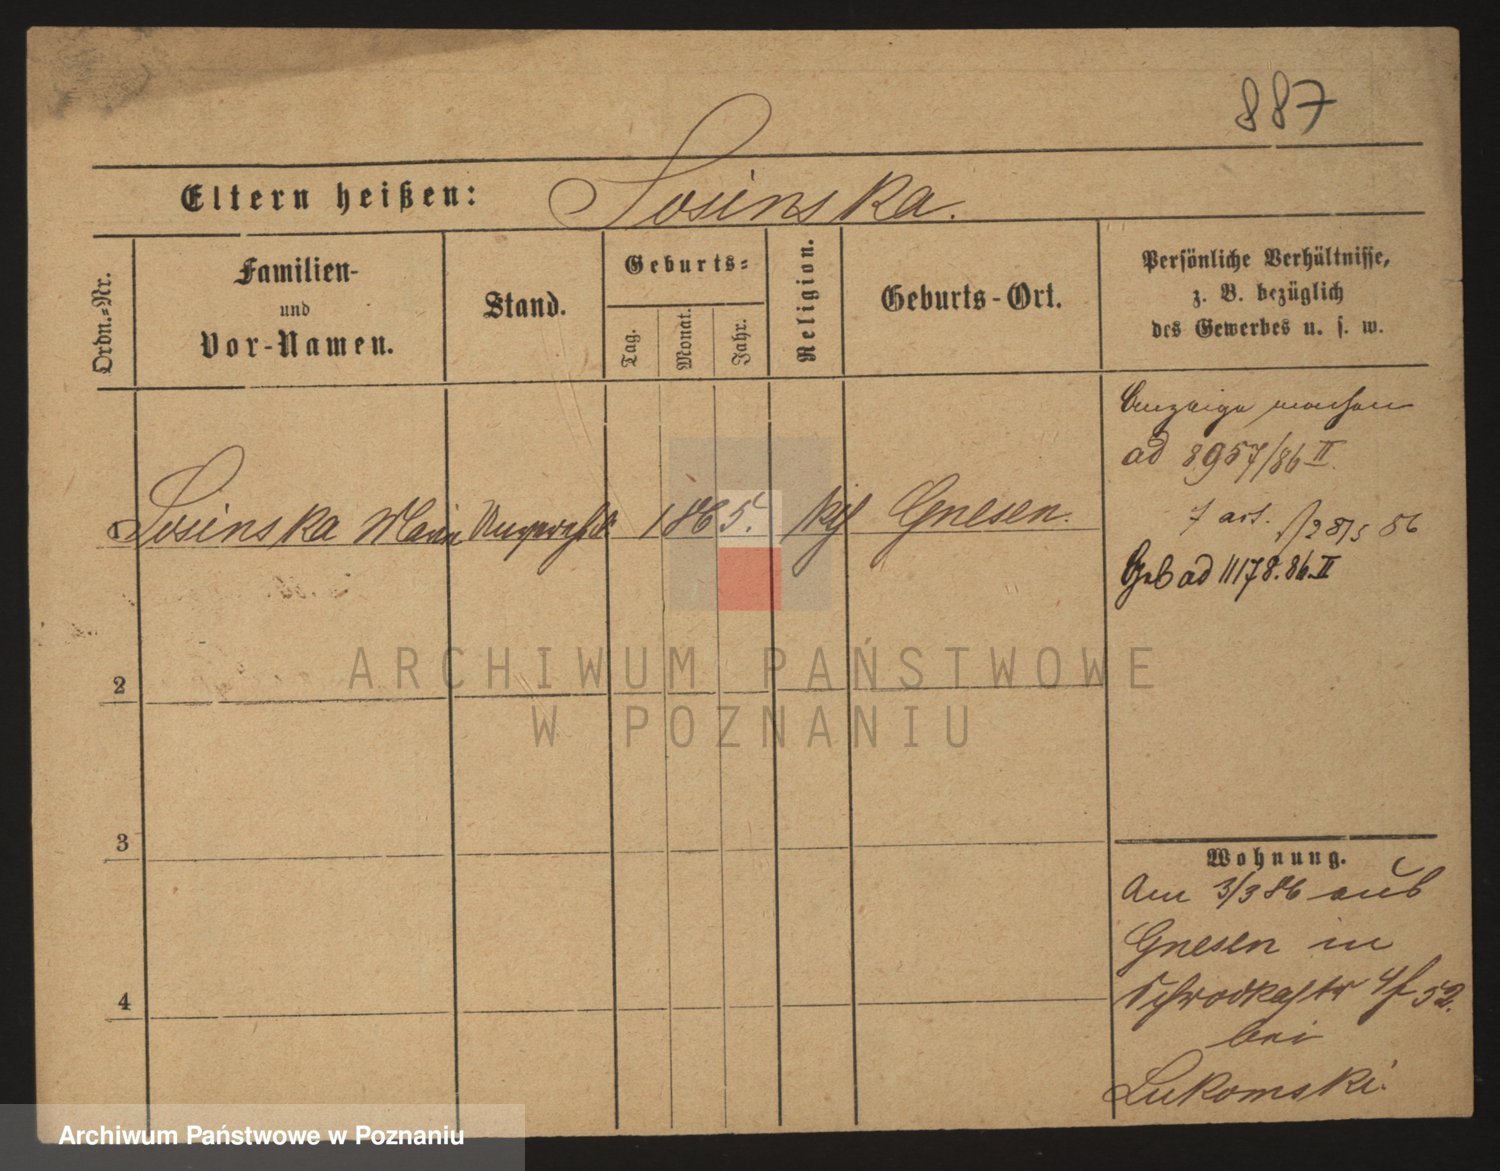 887
Eltern heißen: Sosinska.
Ordn.-Nr.
Familien-
und
Vor-Namen.
Stand.
Geburts-
Tag.
Monat.
Jahr.
Religion.
Geburts-Ort.
Persönliche Verhältnisse,
z. B. bezüglich
des Gewerbes u. s. w.
Anzeige machen
ad 8957/86 II
Sosinska Marie 1865. Gnesen.
7 86
ad 11178.86.II
ARCHIWUM PAŃSTWOWE
W POZNANIU
2
3
4
Wohnung.
Am 3/3 86 aus
Gnesen in
Schrodkastr 4
bei
Lukomski.
Archiwum Państwowe w Poznaniu